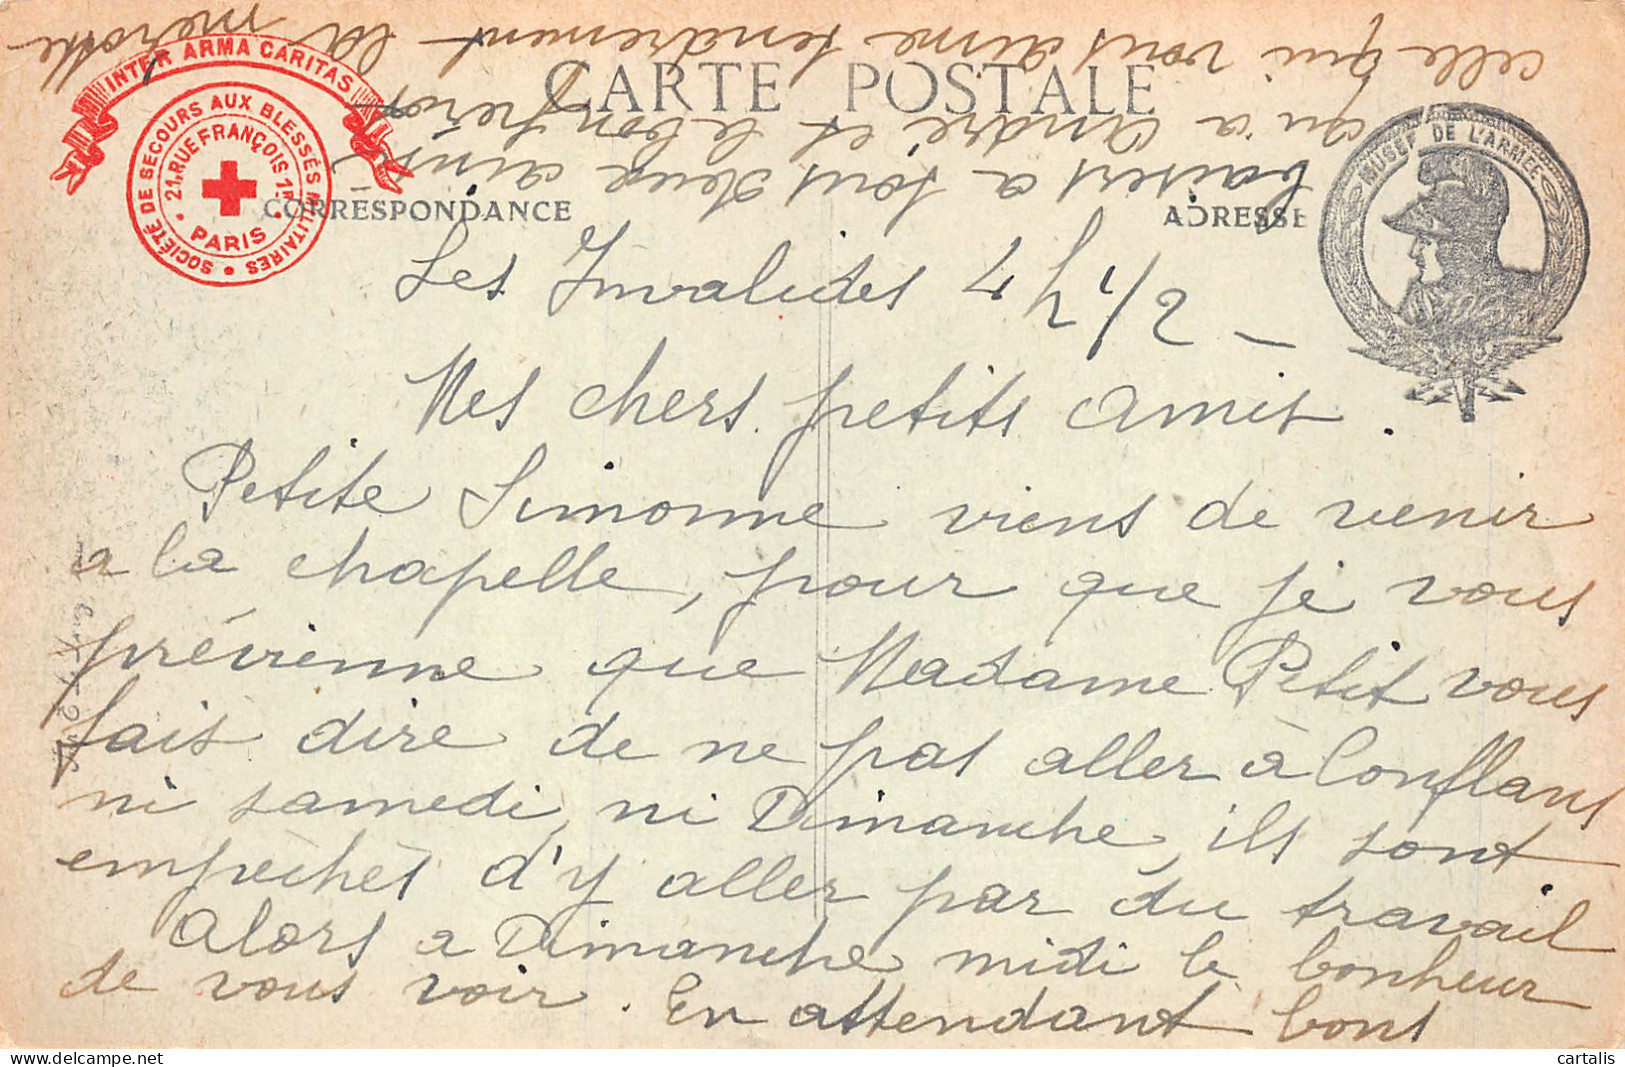 INTER ARMA CARITAS
SOCIÉTÉ DE SECOURS AUX BLESSÉS MILITAIRES
21, RUE FRANÇOIS 1ER
PARIS
CARTE POSTALE
CORRESPONDANCE
ADRESSE
MUSÉE DE L'ARMÉE
Les Invalides 4 h 1/2 –
Mes chers petits amis.
Petite Simonne viens de venir
a la chapelle, pour que je vous
prévienne que Madame Petit vous
fais dire de ne pas aller à Conflans
ni samedi, ni Dimanche, ils sont
empêchés d'y aller par du travail
Alors a Dimanche midi le bonheur
de vous voir. En attendant bons
baisers a tous deux ainsi
qu'a André et le bon frérot
celle qui vous aime tendrement – la
cartalis